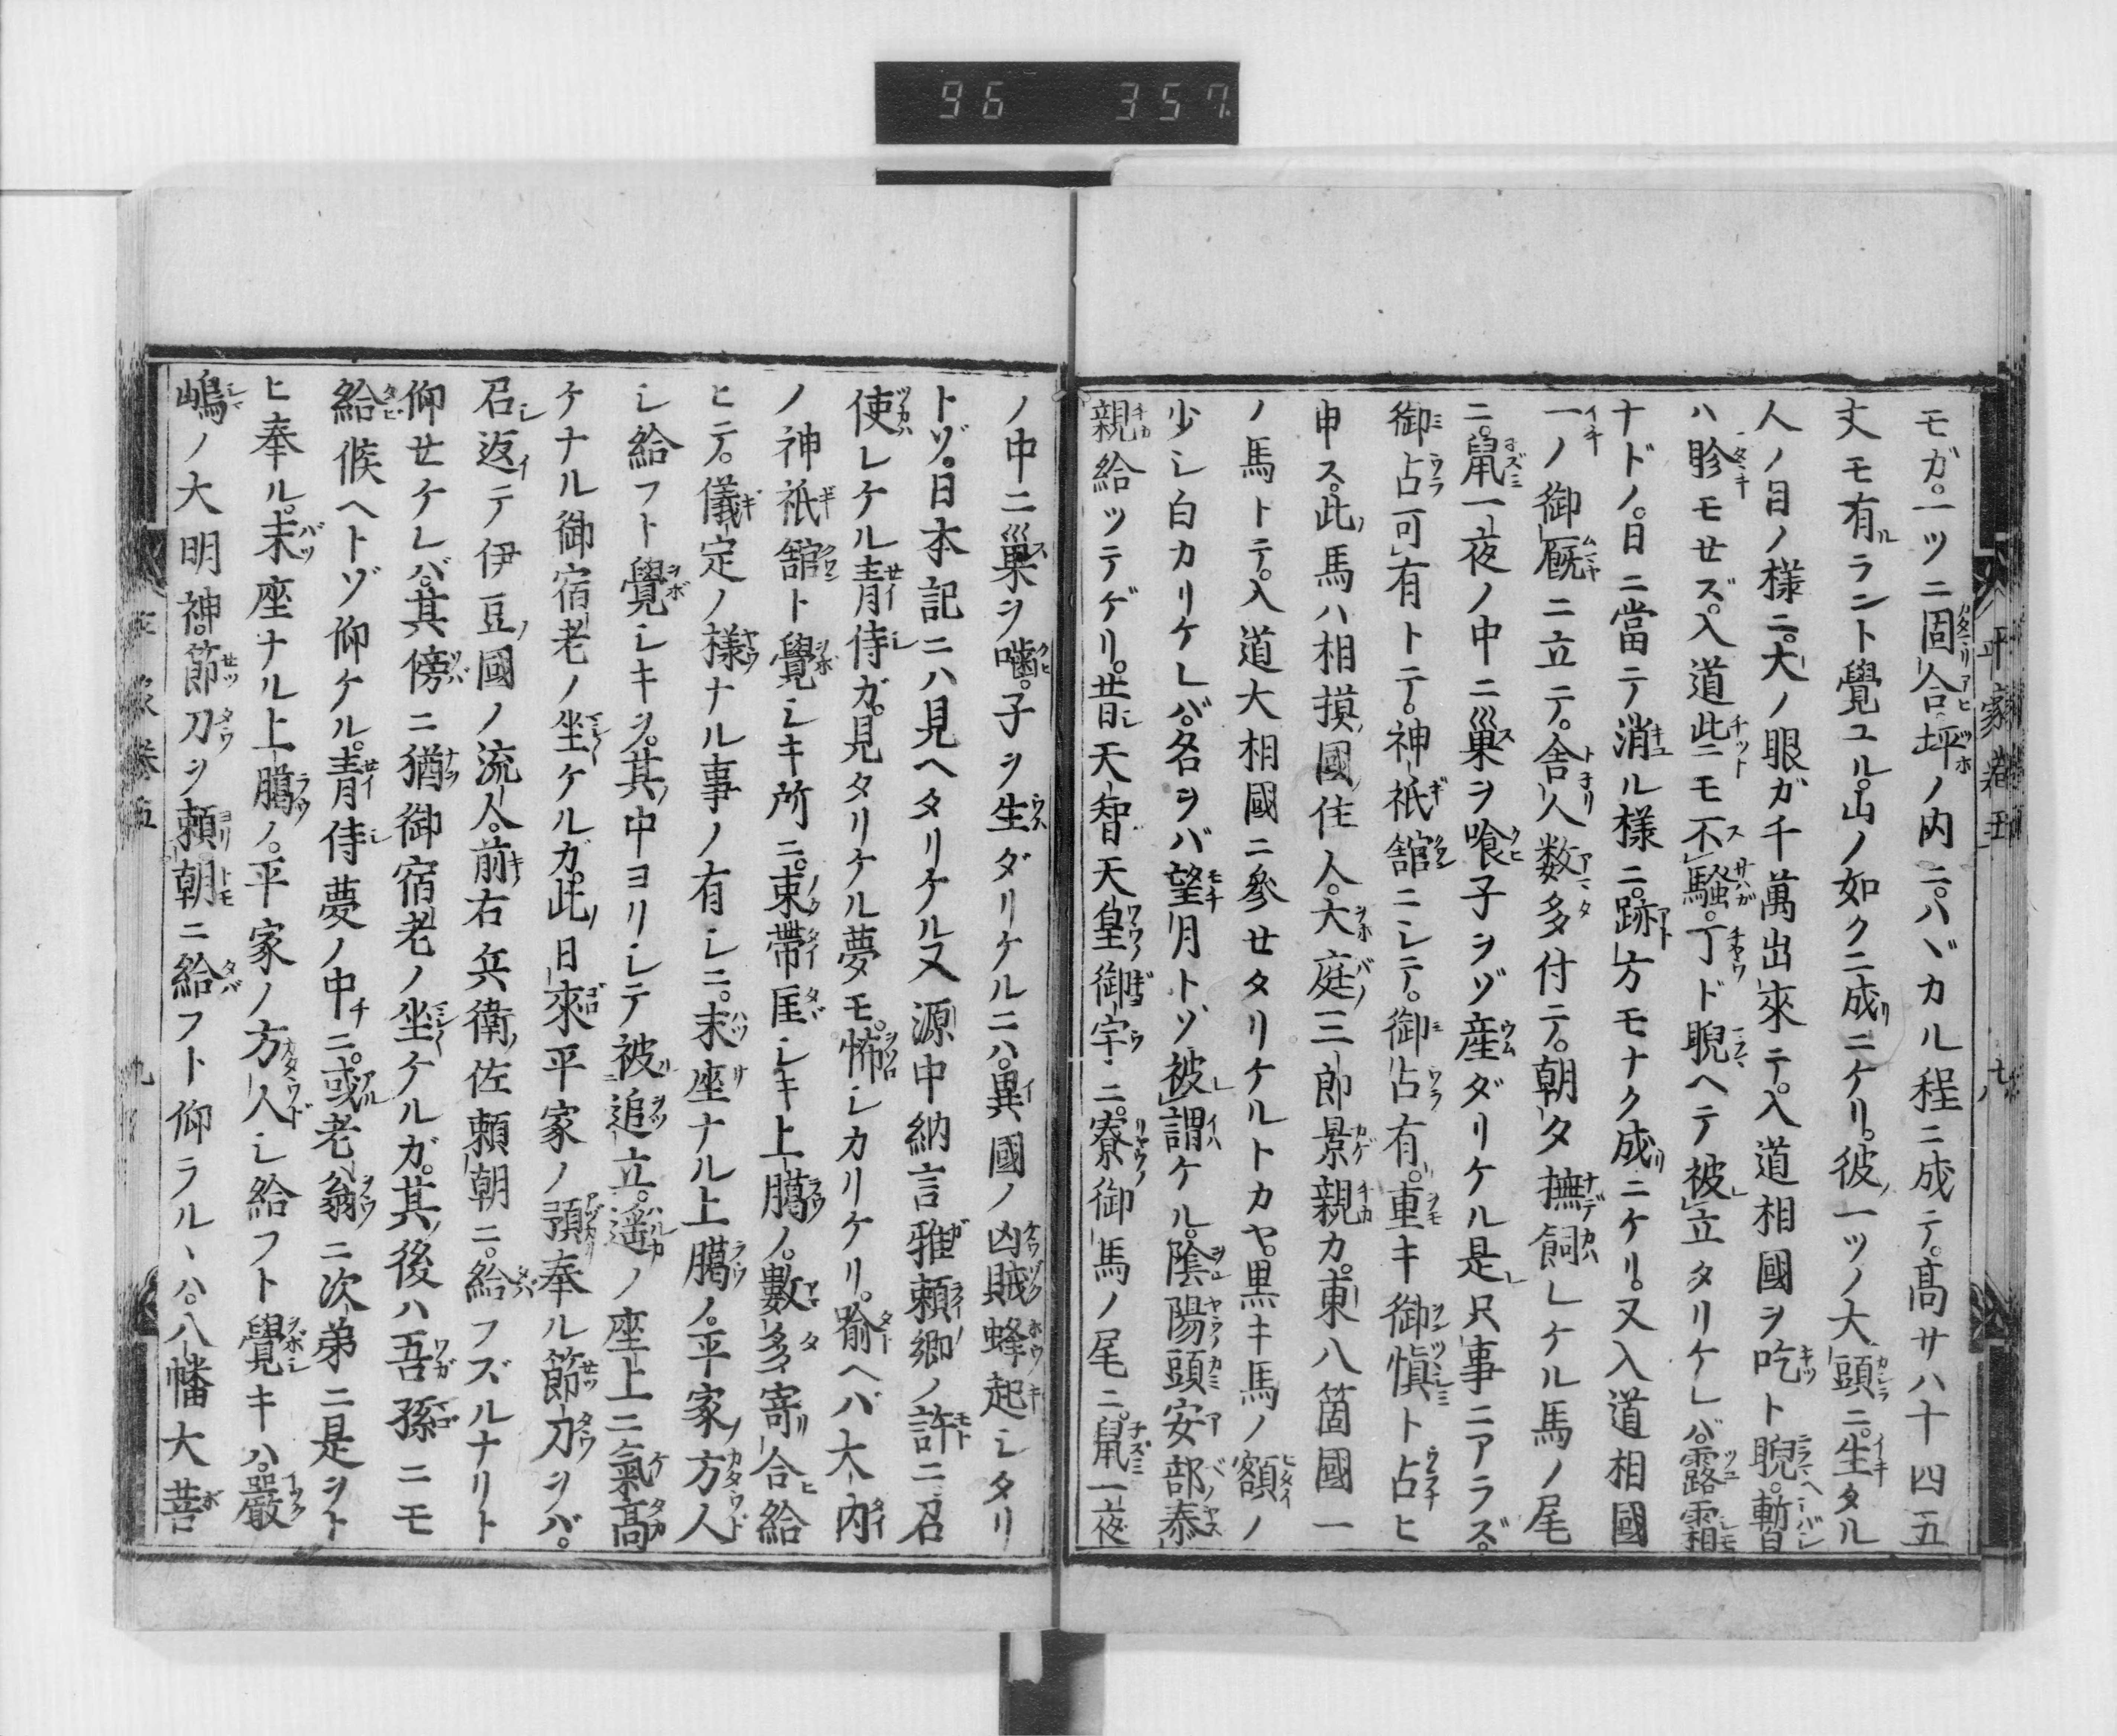 96 357
モガ。一ツニ固合坪ノ内ニ。ハヾカル程ニ成テ。高サハ十四五
丈モ有ラント覺ユル。山ノ如クニ成ニケリ。彼一ツノ大頭ニ。生タル
人ノ目ノ様ニ。大ノ眼ガ千萬出來テ。入道相國ヲ屹ト睨。暫
ハ眕モせズ。入道些モ不騒。丁ド睨ヘテ被立タリケレバ。露霜
ナドノ。日ニ當テ消ル様ニ。跡方モナク成ニケリ。又入道相國
一ノ御厩ニ立テ。舎人数多付テ。朝タ撫飼レケル馬ノ尾
ニ。鼠一夜ノ中ニ巣ヲ喰子ヲゾ産ダリケル是只事ニアラズ。
御占可有トテ。神祇舘ニシテ。御占有。重キ御愼ト占ヒ
申ス。此馬ハ相摸國住人。大庭三郎景親カ。東八箇國一
ノ馬トテ。入道大相國ニ参せタリケルトカヤ。黒キ馬ノ額ノ
少シ白カリケレバ。名ヲバ望月トゾ被謂ケル。陰陽頭安部泰
親給ツテゲリ。昔天智天皇御宇ニ。寮御馬ノ尾ニ。鼠一夜
ノ中ニ巣ヲ噛。子ヲ生ダリケルニハ。異國ノ凶賊蜂起シタリ
トゾ。日本記ニハ見ヘタリケル又源中納言雅頼卿ノ許ニ召
使レケル青侍ガ。見タリケル夢モ。怖シカリケリ。喩ヘバ大内
ノ神祇舘ト覺シキ所ニ。束帶匡シキ上臈ノ。數多寄合給
ヒテ。儀定ノ様ナル事ノ有シニ。末座ナル上臈ノ。平家ノ方人
シ給フト覺シキヲ。其中ヨリシテ被追立。遥ノ座上ニ氣高
ケナル御宿老ノ坐ケルガ。此日來平家ノ預奉ル節刀ヲバ。
召返テ伊豆國ノ流人。前右兵衛佐頼朝ニ。給フズルナリト
仰せケレバ。其傍ニ猶御宿老ノ坐ケルガ。其後ハ吾孫ニモ
給候ヘトゾ仰ケル。青侍夢ノ中ニ。或老翁ニ次弟ニ是ヲト
ヒ奉ル。末座ナル上臈ノ。平家ノ方人シ給フト覺キハ。嚴
嶋ノ大明神。節刀ヲ頼朝ニ給フト仰ラルヽハ。八幡大菩